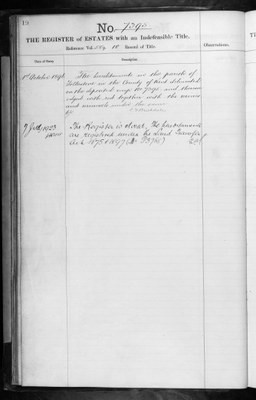 19
No. 7292
THE REGISTER of ESTATES with an Indefeasible Title.
Reference Vol. 10 Record of Title.
Date of Entry.
Description.
Observations.
1st October 1896
The hereditaments in the parish of
in the County of Kent delineated
on the deposited map and
edged with red together with the mines
and minerals under the same
7 July 1923
The Register is closed. The hereditaments
are registered under the Land Transfer
Acts 1875 & 1897